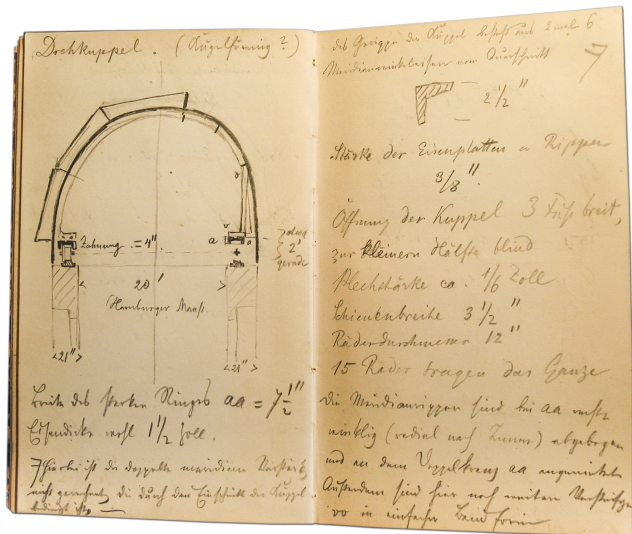 Drehkuppel. (Kugelförmig?)
Zahnung = 4"
a
a
20'
Hamburger Maaß.
2'
gerade
<21">
<21">
Breite des starken Ringes aa = 7 1/2"
Eisendicke wohl 1 1/2 Zoll.
Hierbei ist die doppelte meridian Verstärk
nicht gerechnet, die durch den Einschnitt der Kuppel
bedingt ist.
des Gerippe der Kuppel besteht aus 2 mal 6
Meridianwinkeleisen vom Durchschnitt
7
2 1/2"
Stärke der Eisenplatten u Rippen
3/8".
Öffnung der Kuppel 3 Fuß breit,
zur kleinern Hälfte blind
Blechstärke ca. 1/6 Zoll
Schienenbreite 3 1/2"
Räderdurchmesser 12"
15 Räder tragen das Ganze
Die Meridianrippen sind bei aa recht
winklig (radial nach Innen) abgebogen
und an dem Doppelkranz aa angenietet
Außerdem sind hier noch weitere
wo in einfacher Form